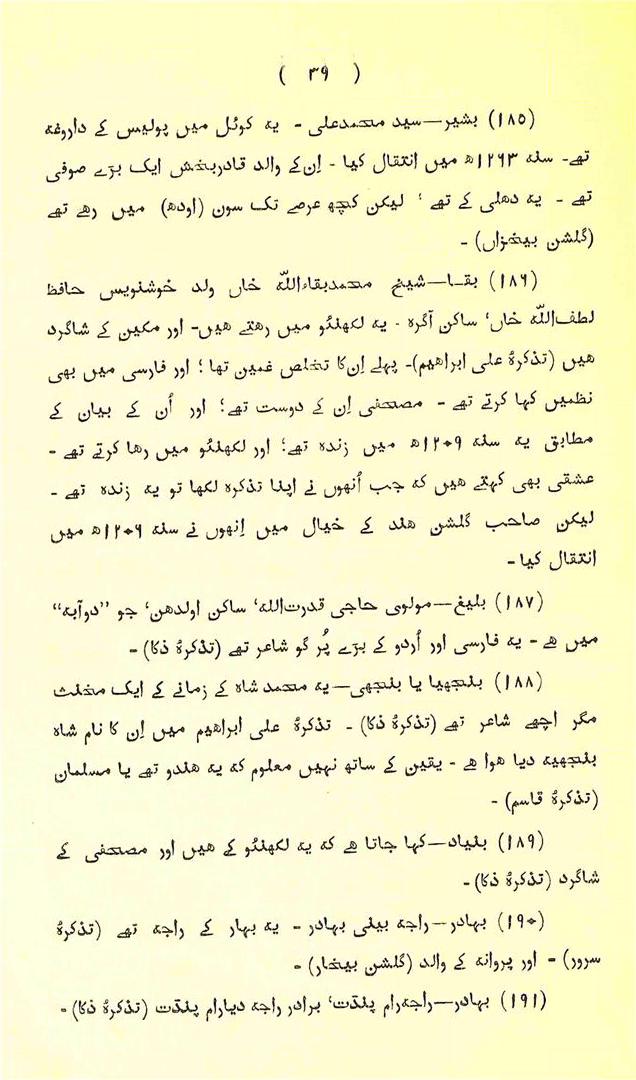 ( ۳۹ )
(۱۸۵) بشیر—سید محمدعلی - یہ کوئل میں پولیس کے داروغہ
تھے- سنہ ۱۲۶۳ھ میں انتقال کیا - اِن کے والد قادربخش ایک بڑے صوفی
تھے - یہ دھلی کے تھے ‘ لیکن کچھ عرصے تک سون (اودھ) میں رھے تھے
(گلشن بیخزاں) -
(۱۸۶) بقا—شیخ محمدبقاءاللّٰہ خاں ولد خوشنویس حافظ
لطف‌اللّٰہ خاں‘ ساکن آگرہ - یہ لکھنئو میں رھتے ھیں- اور مکین کے شاگرد
ھیں (تذکرۂ علی ابراھیم)- پہلے اِن‌کا تخلص غمین تھا ؛ اور فارسی میں بھی
نظمیں کہا کرتے تھے - مصحفی اِن کے دوست تھے؛ اور اُن کے بیان کے
مطابق یہ سنہ ۱۲۰۹ھ میں زندہ تھے؛ اور لکھنئو میں رھا کرتے تھے -
عشقی بھی کہتے ھیں کہ جب اُنھوں نے اپنا تذکرہ لکھا تو یہ زندہ تھے -
لیکن صاحب گلشن ھند کے خیال میں اِنھوں نے سنہ ۱۲۰۶ھ میں
انتقال کیا -
(۱۸۷) بلیغ—مولوی حاجی قدرت‌اللہ‘ ساکن اولدھن‘ جو ”دوآبہ“
میں ھے - یہ فارسی اور اُردو کے بڑے پُر گو شاعر تھے (تذکرۂ ذکا) -
(۱۸۸) بلنجھیا یا بلنجھی—یہ محمد شاہ کے زمانے کے ایک مخنث
مگر اچھے شاعر تھے (تذکرۂ ذکا) - تذکرۂ علی ابراھیم میں اِن کا نام شاہ
بلنجھیہ دیا ھوا ھے - یقین کے ساتھ نہیں معلوم کہ یہ ھندو تھے یا مسلمان
(تذکرۂ قاسم) -
(۱۸۹) بنیاد—کہا جاتا ھے کہ یہ لکھنئو کے ھیں اور مصحفی کے
شاگرد (تذکرۂ ذکا)-
(۱۹۰) بہادر—راجہ بینی بہادر - یہ بہار کے راجہ تھے (تذکرۂ
سرور) - اور پروانہ کے والد (گلشن بیخار) -
(۱۹۱) بہادر—راجہ‌رام پنڈت‘ برادر راجہ دیارام پنڈت (تذکرۂ ذکا) -